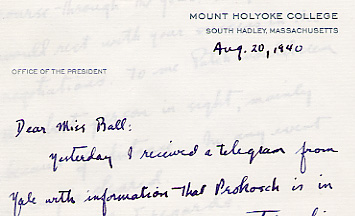 MOUNT HOLYOKE COLLEGE
SOUTH HADLEY, MASSACHUSETTS
Aug. 20, 1940
OFFICE OF THE PRESIDENT
Dear Miss Ball:
Yesterday I received a telegram from
Yale with information that Prokosch is in